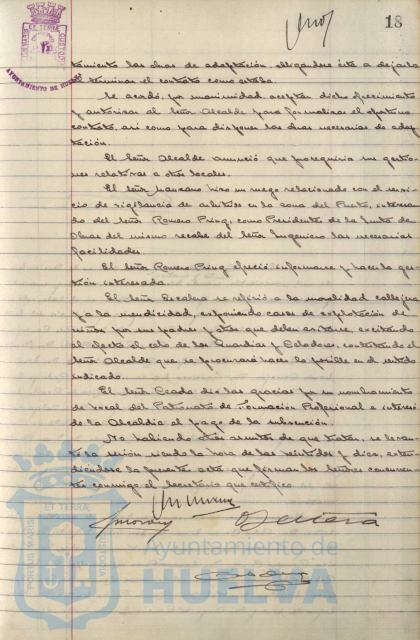 18
AYUNTAMIENTO DE HUELVA
tamiento las obras de adaptación, obligándose éste a dejarlo
al terminar el contrato como estaba.
Se acordó, por unanimidad, aceptar dicho ofrecimiento
y autorizar al Señor Alcalde para formalizar el oportuno
contrato, así como para disponer las obras necesarias de adap-
tación.
El Señor Alcalde anunció que proseguiría sus gestio-
nes relativas a otros locales.
El Señor Manzano hizo un ruego relacionado con el servi-
cio de vigilancia de arbitrios en la zona del Puerto, interesan-
do del Señor Romero Pring, como Presidente de la Junta de
Obras del mismo recabe del Señor Ingeniero las necesarias
facilidades.
El Señor Romero Pring ofreció informarse y hacer la ges-
tión interesada.
El Señor Escalera se refirió a la moralidad callejera
y a la mendicidad, exponiendo casos de explotación de
niños por sus padres y otros que deben evitarse, excitando
al efecto el celo de los Guardias y Celadores, contestando el
Señor Alcalde que se procurará hacer lo posible en el sentido
indicado.
El Señor dio las gracias por su nombramiento
de Vocal del Patronato de Formación Profesional e interesó
de la Alcaldía el pago de la subvención.
No habiendo otros asuntos de que tratar, se levan-
tó la sesión siendo la hora de las veintidós y diez, exten-
diéndose la presente acta que firman los Señores concurren-
tes conmigo el Secretario que certifico.
PORTUS MARIS ET TERRAE CUSTODIA
Ayuntamiento de
HUELVA